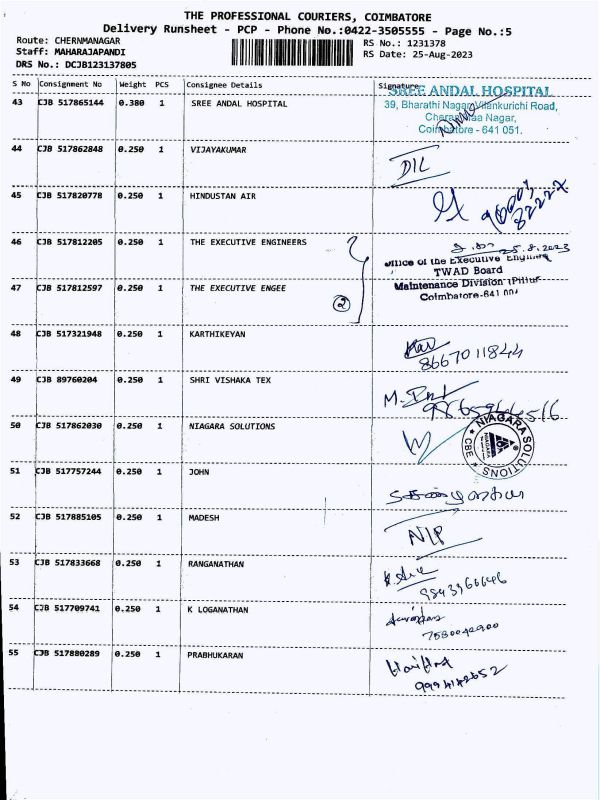 THE PROFESSIONAL COURIERS, COIMBATORE
Delivery Runsheet - PCP - Phone No.:0422-3505555 - Page No.:5
Route: CHERNMANAGAR RS No.: 1231378
Staff: MAHARAJAPANDI RS Date: 25-Aug-2023
DRS No.: DCJB123137805
S No Consignment No Weight PCS Consignee Details Signature
43 CJB 517865144 0.380 1 SREE ANDAL HOSPITAL
SREE ANDAL HOSPITAL
39, Bharathi Nagar, Vilankurichi Road,
Nagar,
Coimbatore - 641 051.
44 CJB 517862848 0.250 1 VIJAYAKUMAR DIL
45 CJB 517820778 0.250 1 HINDUSTAN AIR
46 CJB 517812205 0.250 1 THE EXECUTIVE ENGINEERS
25.8.2023
Office of the Executive Engineer
TWAD Board
Maintenance Division
Coimbatore-641
47 CJB 517812597 0.250 1 THE EXECUTIVE ENGEE 2
48 CJB 517321948 0.250 1 KARTHIKEYAN
8667011844
49 CJB 89760204 0.250 1 SHRI VISHAKA TEX
50 CJB 517862030 0.250 1 NIAGARA SOLUTIONS
NIAGARA SOLUTIONS
CBE
NIAGARA
51 CJB 517757244 0.250 1 JOHN
52 CJB 517885105 0.250 1 MADESH
NIP
53 CJB 517833668 0.250 1 RANGANATHAN
54 CJB 517709741 0.250 1 K LOGANATHAN
55 CJB 517880289 0.250 1 PRABHUKARAN